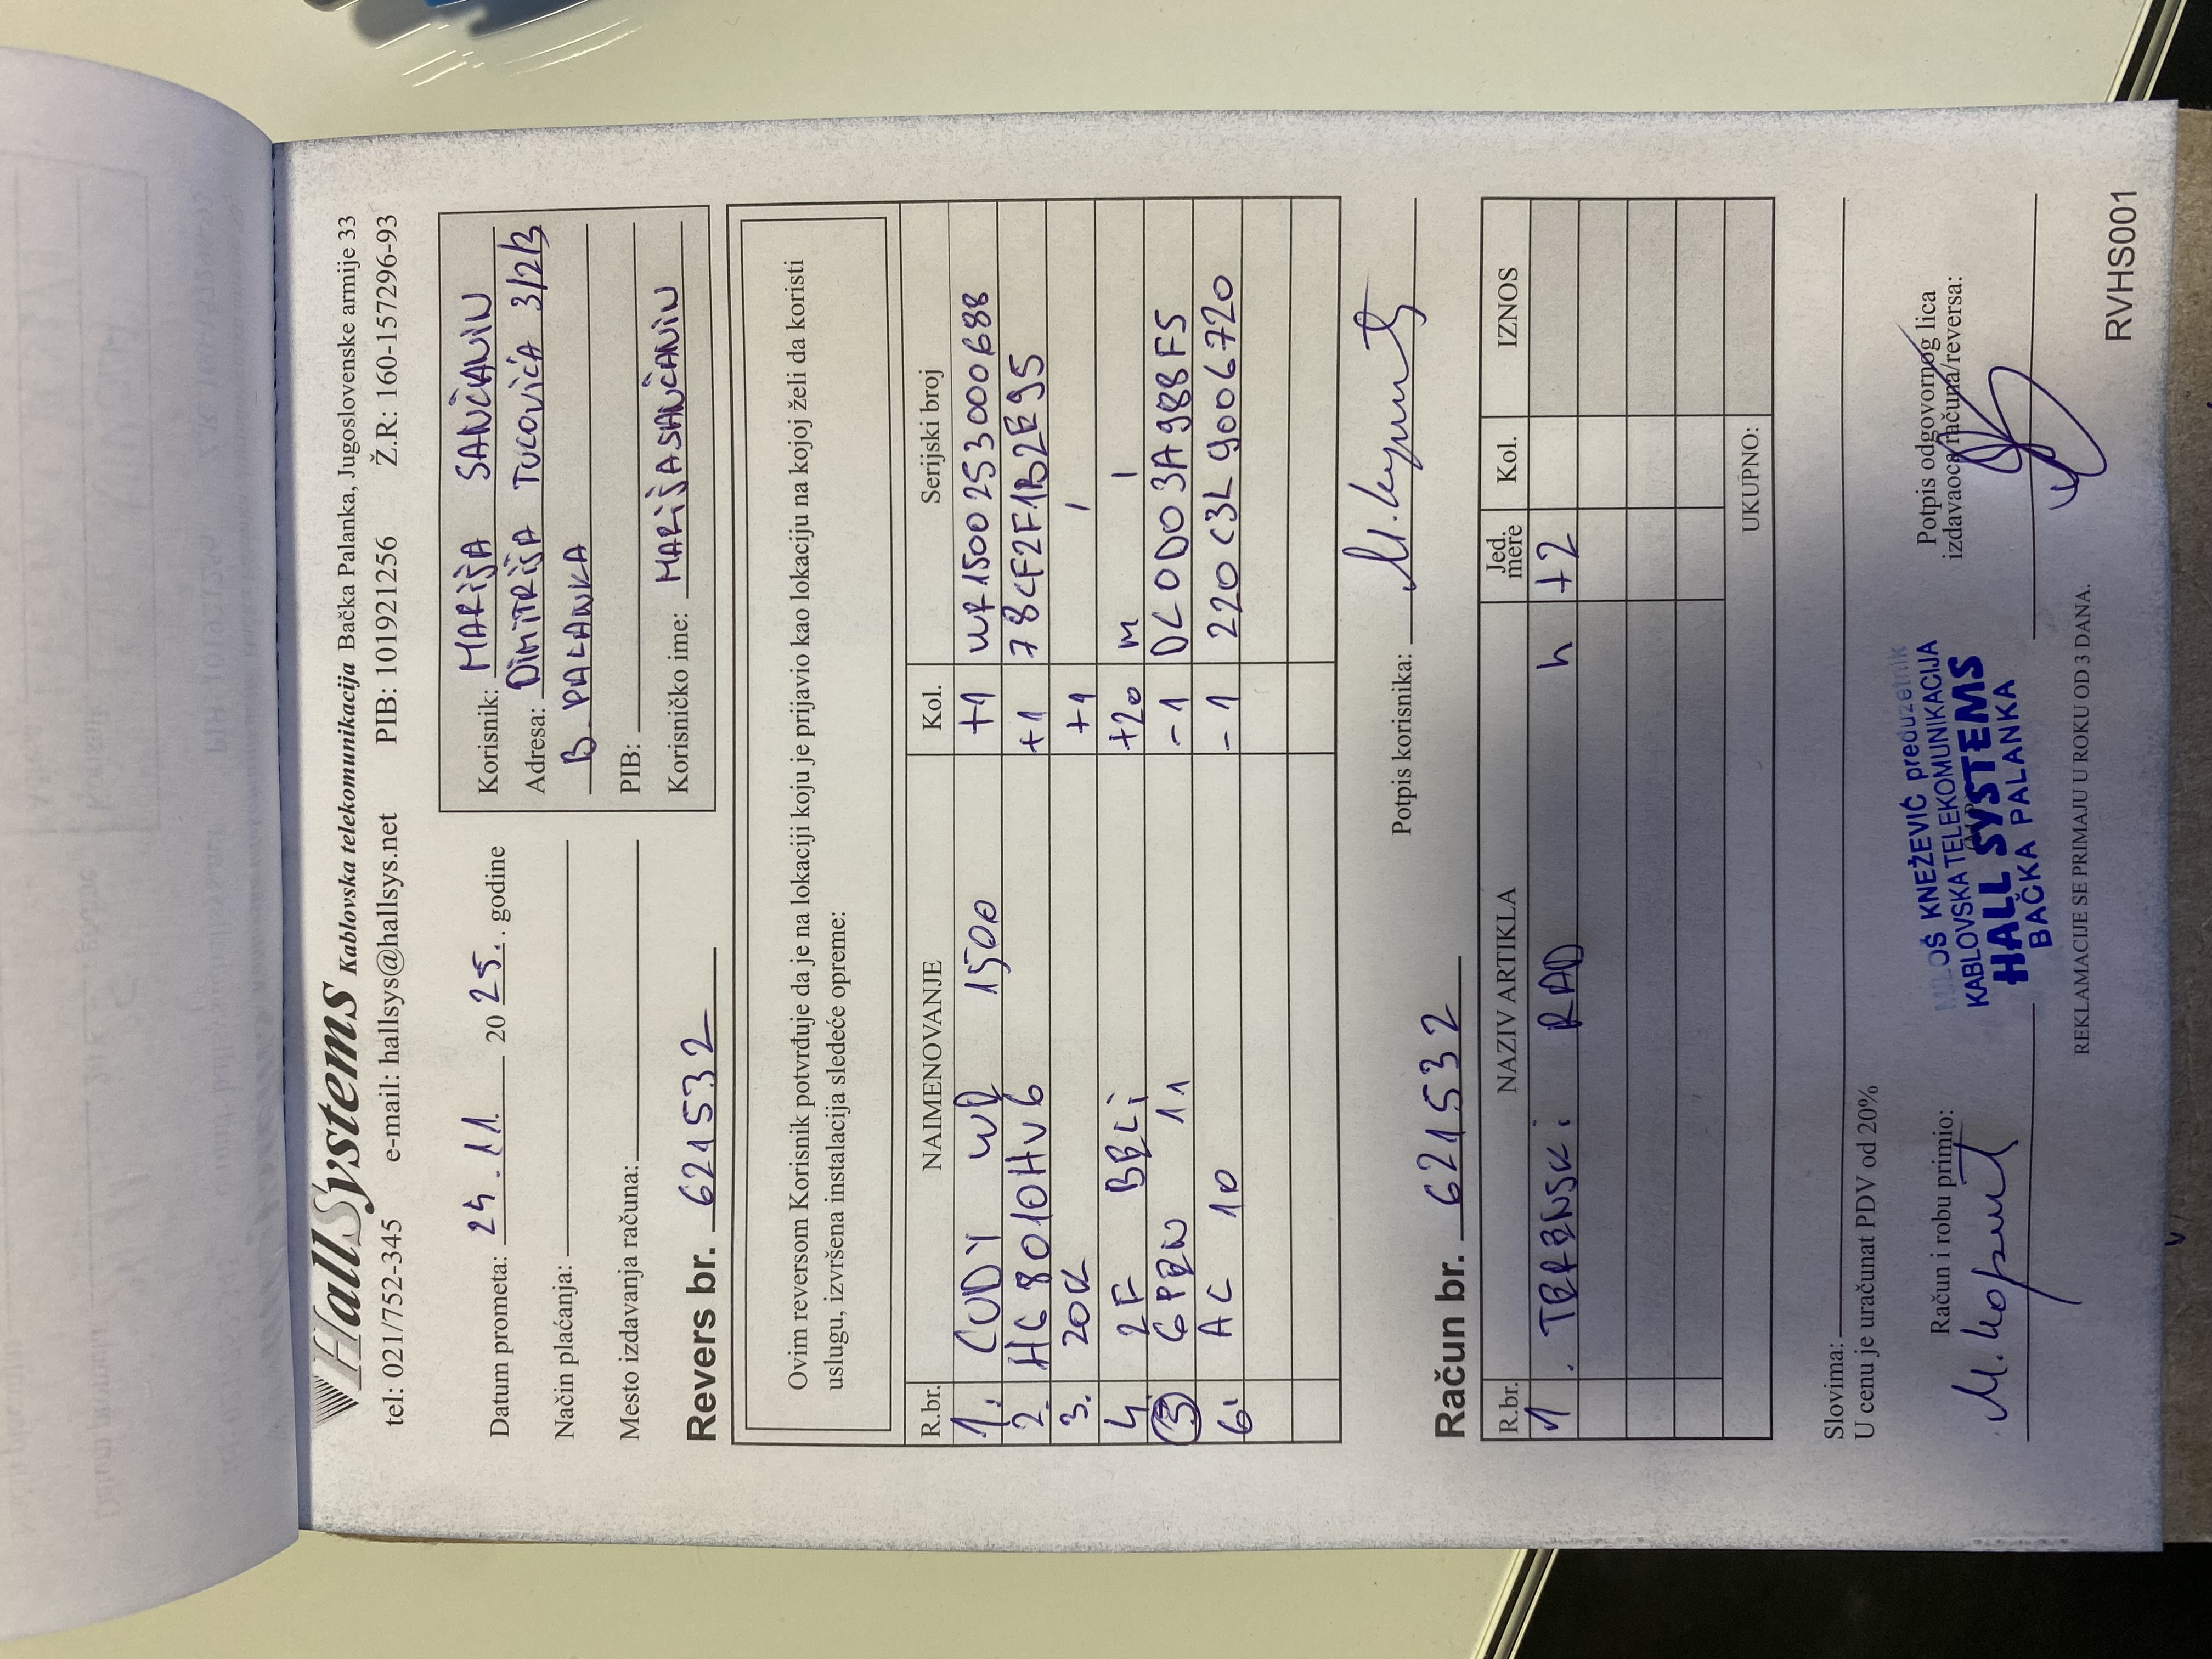 HallSystems Kablovska telekomunikacija Bačka Palanka, Jugoslovenske armije 33
tel: 021/752-345 e-mail: hallsys@hallsys.net PIB: 101921256 Ž.R: 160-157296-93
Datum prometa: 24.11. 2025. godine
Način plaćanja:
Mesto izdavanja računa:
Korisnik: MARIJA SANČANIN
Adresa: DIMITRIJA TUCOVIĆA 3/2/3
B. PALANKA
PIB:
Korisničko ime: MARIJASANČANIN
Revers br. 621532
Ovim reversom Korisnik potvrđuje da je na lokaciji koju je prijavio kao lokaciju na kojoj želi da koristi
uslugu, izvršena instalacija sledeće opreme:
R.br. NAIMENOVANJE Kol. Serijski broj
1. CUDY WR 1500 +1 WR1500253000688
2. HG8010HV6 +1 78CF2F1B2E95
3. 20K +1 /
4 2F BELI +20 m /
5 GPON 11 -1 DC0D03A988F5
6. AC 10 -1 220C3L9006720
Potpis korisnika:
Račun br. 621532
R.br. NAZIV ARTIKLA Jed. mere Kol. IZNOS
1. TERENSKI RAD h +2
UKUPNO:
Slovima:
U cenu je uračunat PDV od 20%
Račun i robu primio:
MILOŠ KNEŽEVIĆ preduzetnik
KABLOVSKA TELEKOMUNIKACIJA
HALL SYSTEMS
BAČKA PALANKA
Potpis odgovornog lica
izdavaoca računa/reversa:
REKLAMACIJE SE PRIMAJU U ROKU OD 3 DANA.
RVHS001